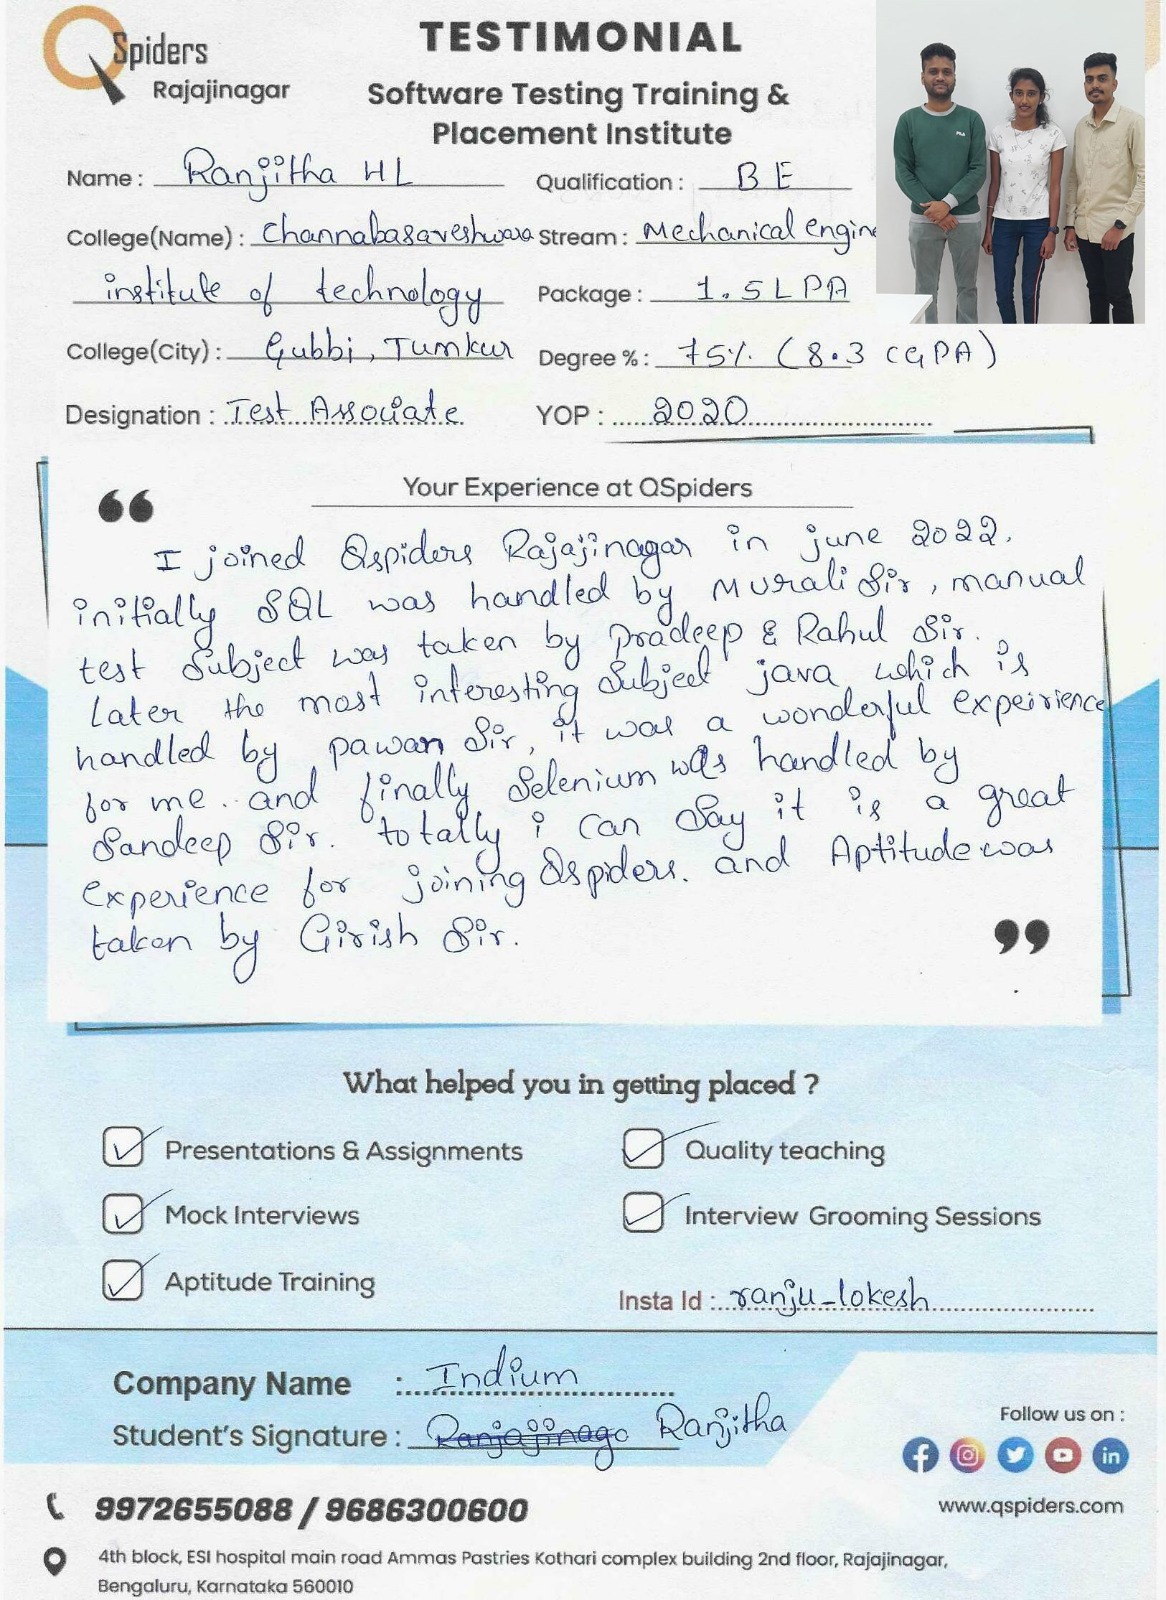 QSpiders
Rajajinagar
TESTIMONIAL
Software Testing Training &
Placement Institute
Name : Ranjitha HL
Qualification : BE
College(Name) : Channabasaveshwara
Stream : Mechanical engine
institute of technology
Package : 1.5 LPA
College(City) : Gubbi, Tumkur
Degree % : 75% (8.3 CGPA)
Designation : Test Associate
YOP : 2020
Your Experience at QSpiders
“
I joined Qspiders Rajajinagar in june 2022.
initially SQL was handled by Murali Sir, manual
test Subject was taken by Pradeep & Rahul Sir.
Later the most interesting Subject java which is
handled by pawan Sir, it was a wonderful expeirience
for me. and finally Selenium was handled by
Sandeep Sir. totally i can Say it is a great
experience for joining Qspiders. and Aptitude was
taken by Girish Sir.
”
What helped you in getting placed ?
Presentations & Assignments
Quality teaching
Mock Interviews
Interview Grooming Sessions
Aptitude Training
Insta Id : ranju_lokesh
Company Name : Indium
Student's Signature : Ranjitha
Follow us on :
www.qspiders.com
9972655088 / 9686300600
4th block, ESI hospital main road Ammas Pastries Kothari complex building 2nd floor, Rajajinagar,
Bengaluru, Karnataka 560010